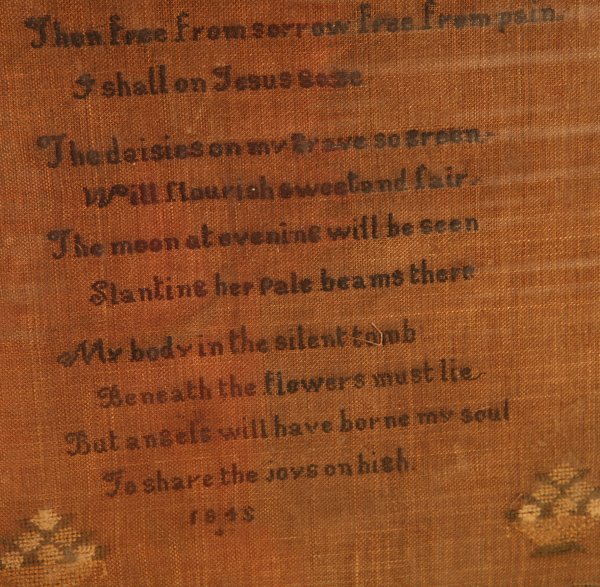 Then free from sorrow free from pain.
I shall on Jesus gaze
The daisies on my grave so green
Will flourish sweet and fair
The moon at evening will be seen
Slanting her pale beams there
My body in the silent tomb
Beneath the flowers must lie
But angels will have borne my soul
To share the joys on high.
1848